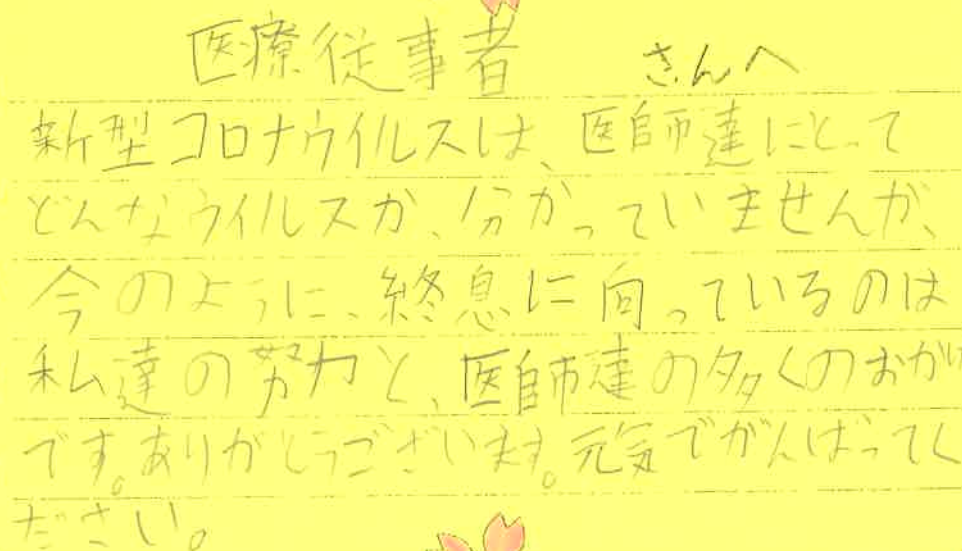 医療従事者 さんへ
新型コロナウイルスは、医師達にとって
どんなウイルスか、分かっていませんが、
今のように、終息に向っているのは
私達の努力と、医師達の多くのおかげ
です。ありがとうございます。元気でがんばってく
ださい。